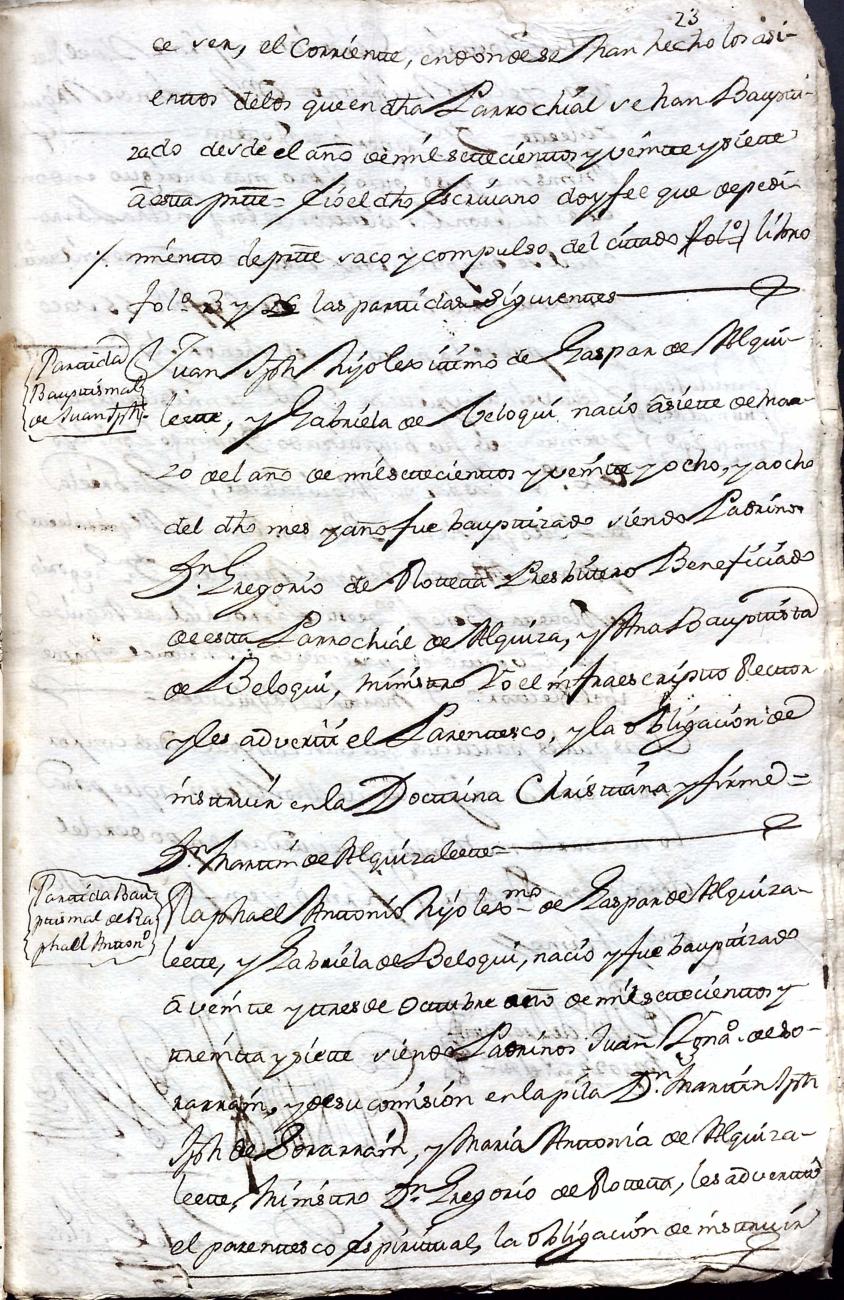 23
ce ver, el Corriente, en donde se han hecho los asi-
enttos delos que en dha Parrochial se han Baupti-
zado desde el año de mil settecienttos y veintte y siette
â esta partte = Eió el dho Escrivano doy fee que de pedi-
mientto de partte saco y compulso del cittado libro
fol.º 23 y 26 las parttidas siguienttes
Parttida
Bauptismal
de Juan Jph.
Juan Jph hijo lexittimo de Gaspar de Alqui-
lette, y Gabriela de Veloqui naciò â siette de mar-
zo del año de mil settecienttos y veintte y ocho, y a ocho
del dho mes y año fue bapttizado siendo Padrinos
Dn. Gregorio de Rotteta Presbittero Beneficiado
de esta Parrochial de Alquiza, y Ana Bauptista
de Beloqui, Ministro Yo el infraescriptto Recttor
y les adverttí el Parenttesco, y la obligación de
insttruir en la Docttrina Christtiana y firmé =
Dn. Marttin de Alquizalette =
Parttida Bau-
ptismal de Ra-
phael Antton.º
Raphael Anttonio hijo lex.mo de Gaspar de Alquiza-
lette, y Gabriela de Beloqui, naciò y fue bauptizado
â veintte y ttres de Octtubre año de mil settecienttos y
treintta y siette siendo Padrinos Juan Ygn.º de So-
rarrain, y de su comisión en la pila Dn. Marttin Jph
Jph de Sorarrain, y Maria Anttonia de Alquiza-
lette, Ministtro Dn. Gregorio de Rotteta, les adverttiò
el parenttesco Espirittual, la obligación de insttruir